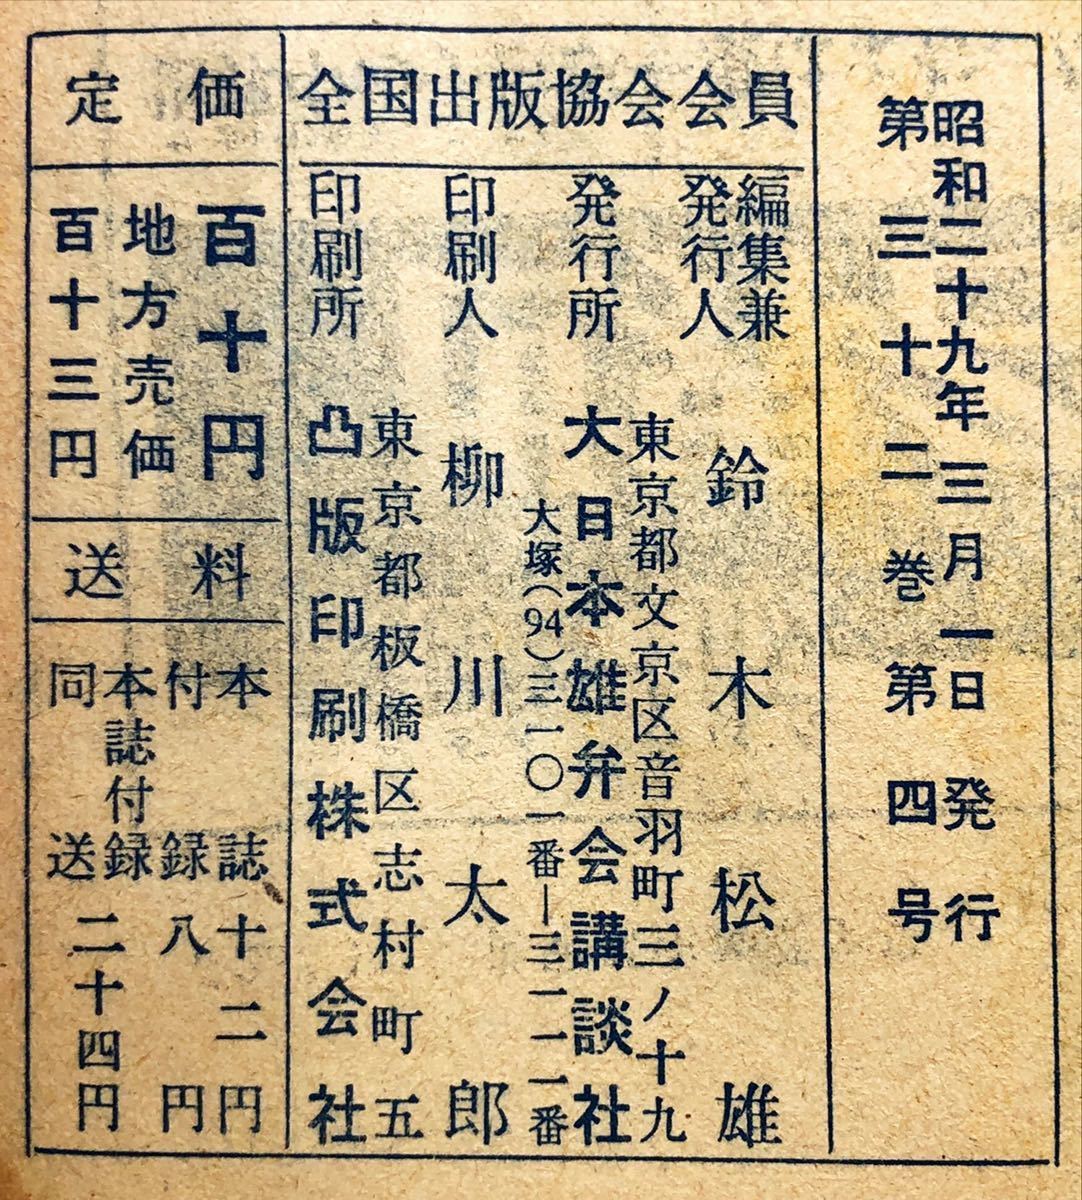 昭和二十九年三月一日発行
第三十二巻第四号
全国出版協会会員
編集兼
発行人
鈴木松雄
発行所
東京都文京区音羽町三ノ十九
大日本雄弁会講談社
大塚(94)三一〇一番―三一一一番
印刷人
柳川太郎
印刷所
東京都板橋区志村町五
凸版印刷株式会社
定価
百十円
地方売価
百十三円
送料
本誌十二円
付録八円
本誌付録
同送二十四円